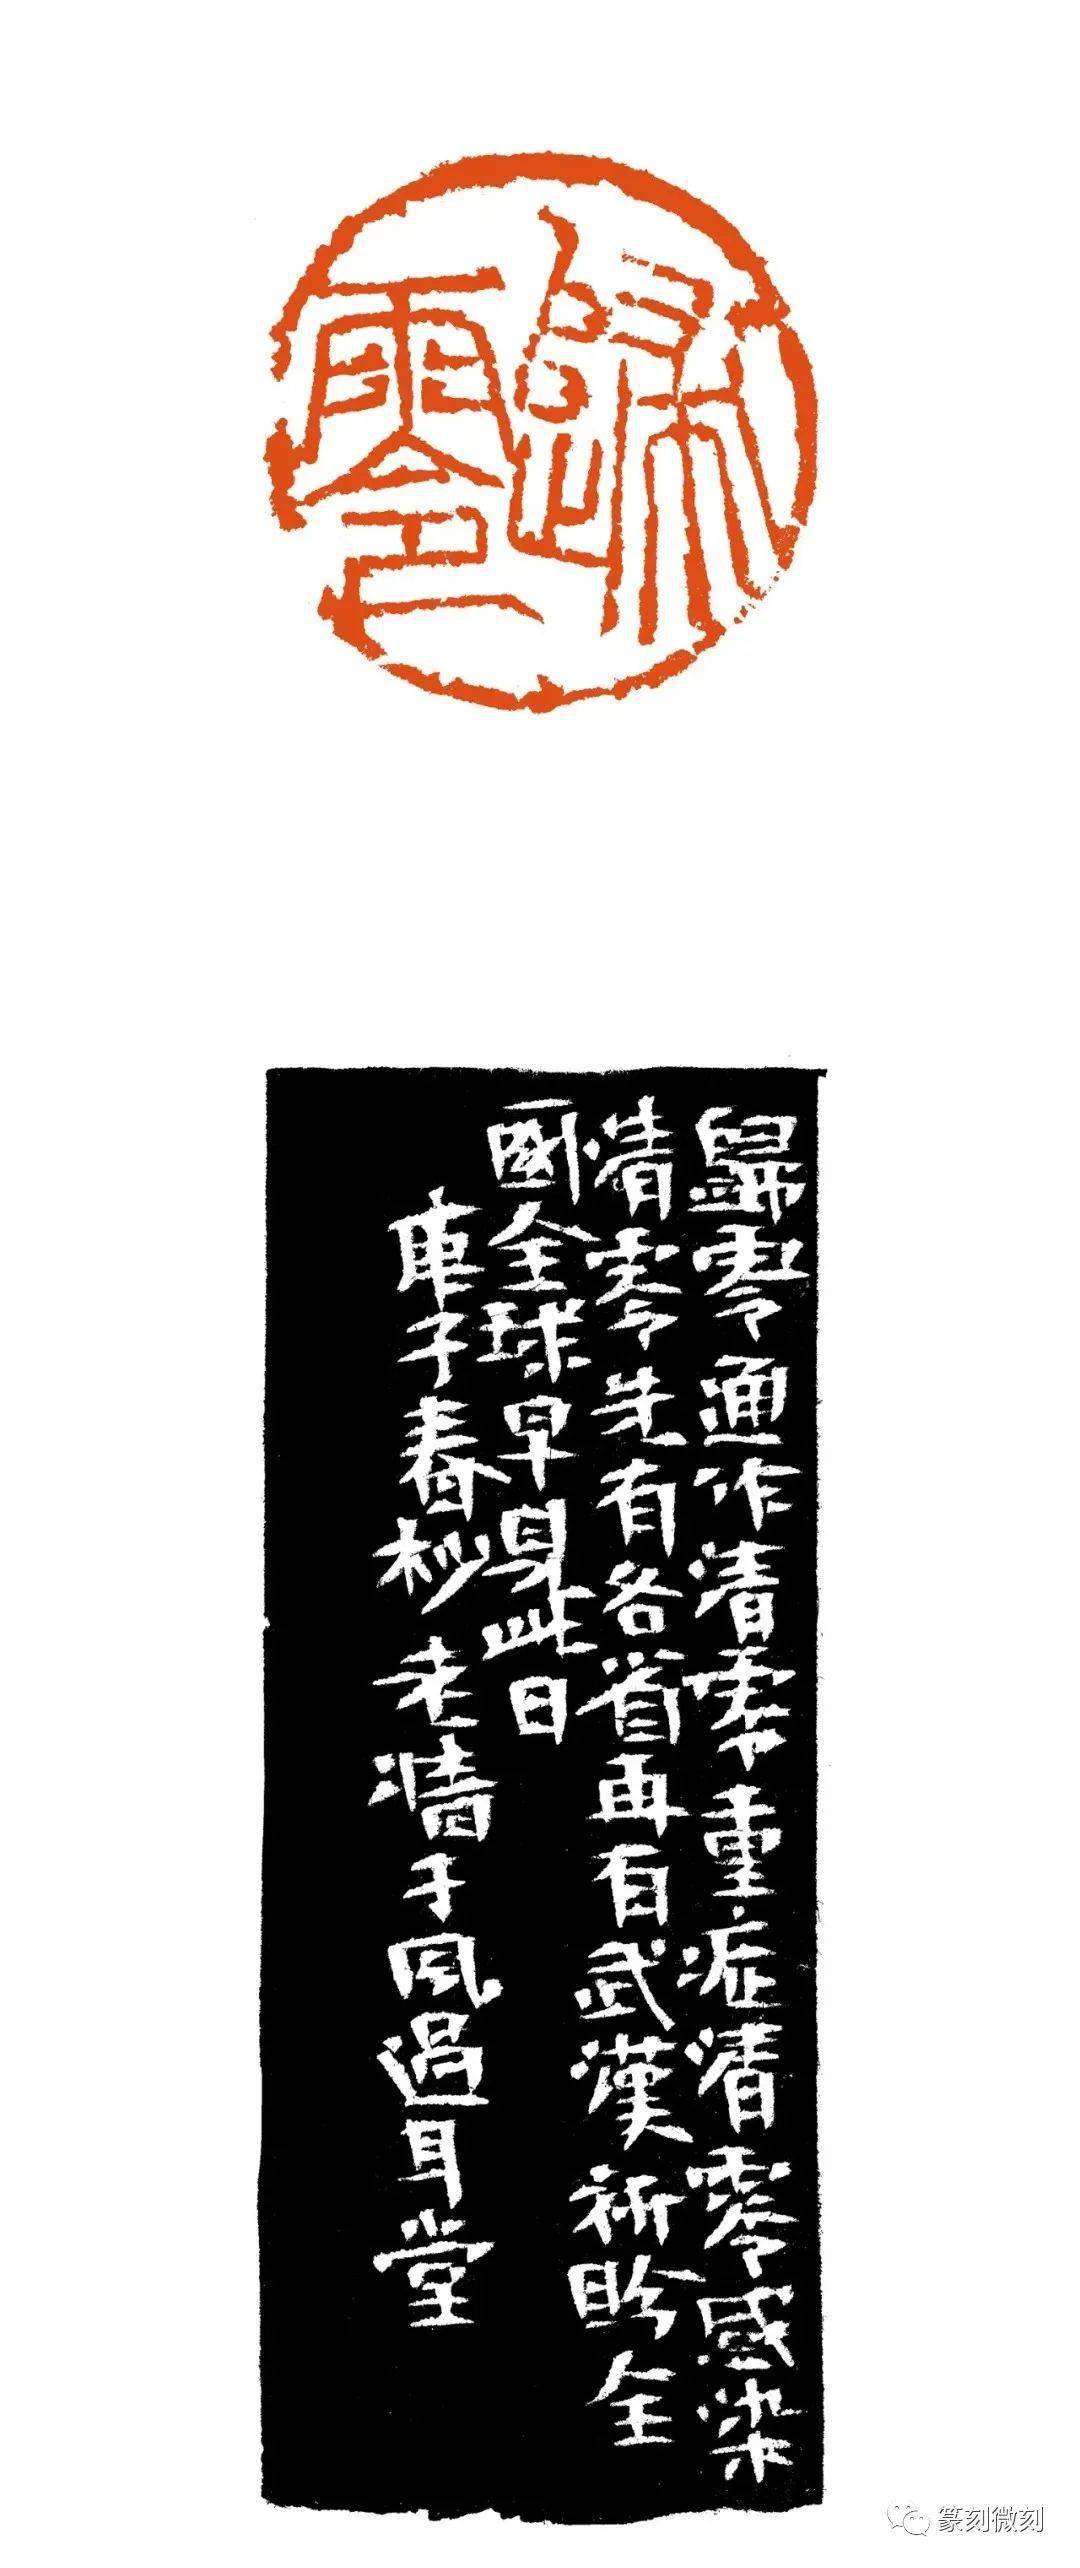 歸零
歸零通作清零重症清零感染
清零先有各省再有武漢祈盼全
國全球早見此日
庚子春杪老牆于風過耳堂
篆刻微刻